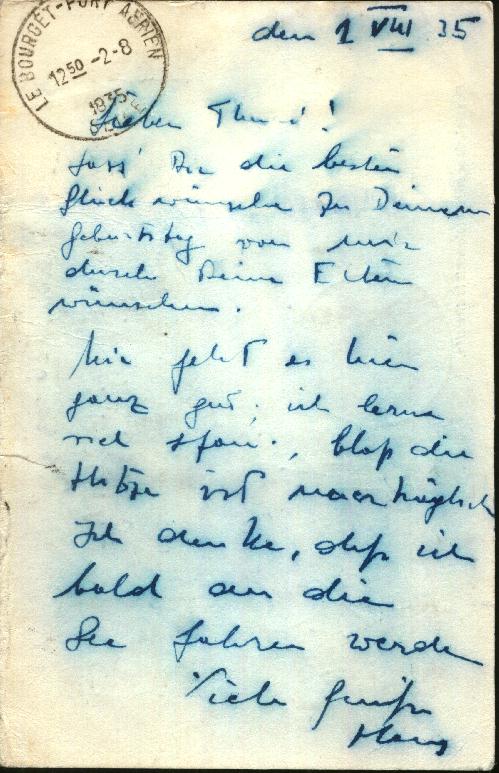 LE BOURGET-PORT AERIEN
12 50 -2-8
1935
den 1 VIII 35
Lieber
Lass' Dir die besten
Glückwünsche zu Deinem
Geburtstag von mir
durch Deine Eltern
wünschen.
Mir geht es hier
ganz gut, ich lerne
viel, bloß die
Hitze ist unerträglich
Ich denke, daß ich
bald an die
See fahren werde
Viele Grüße
Hans